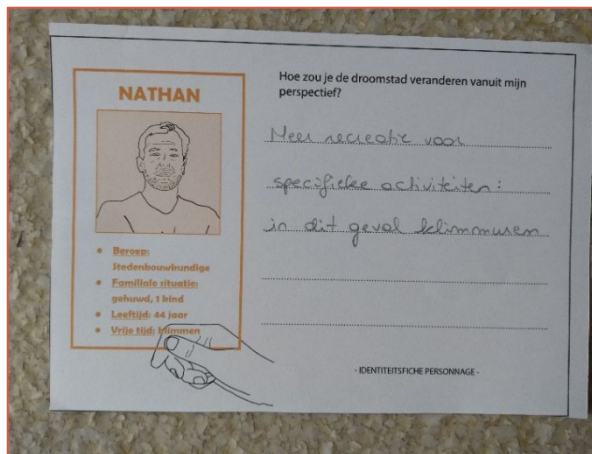 NATHAN
• Beroep:
Stedenbouwkundige
• Familiale situatie:
gehuwd, 1 kind
• Leeftijd: 44 jaar
• Vrije tijd: klimmen
Hoe zou je de droomstad veranderen vanuit mijn
perspectief?
Meer recreatie voor
specifieke activiteiten:
in dit geval klimmuren
- IDENTITEITSFICHE PERSONNAGE -